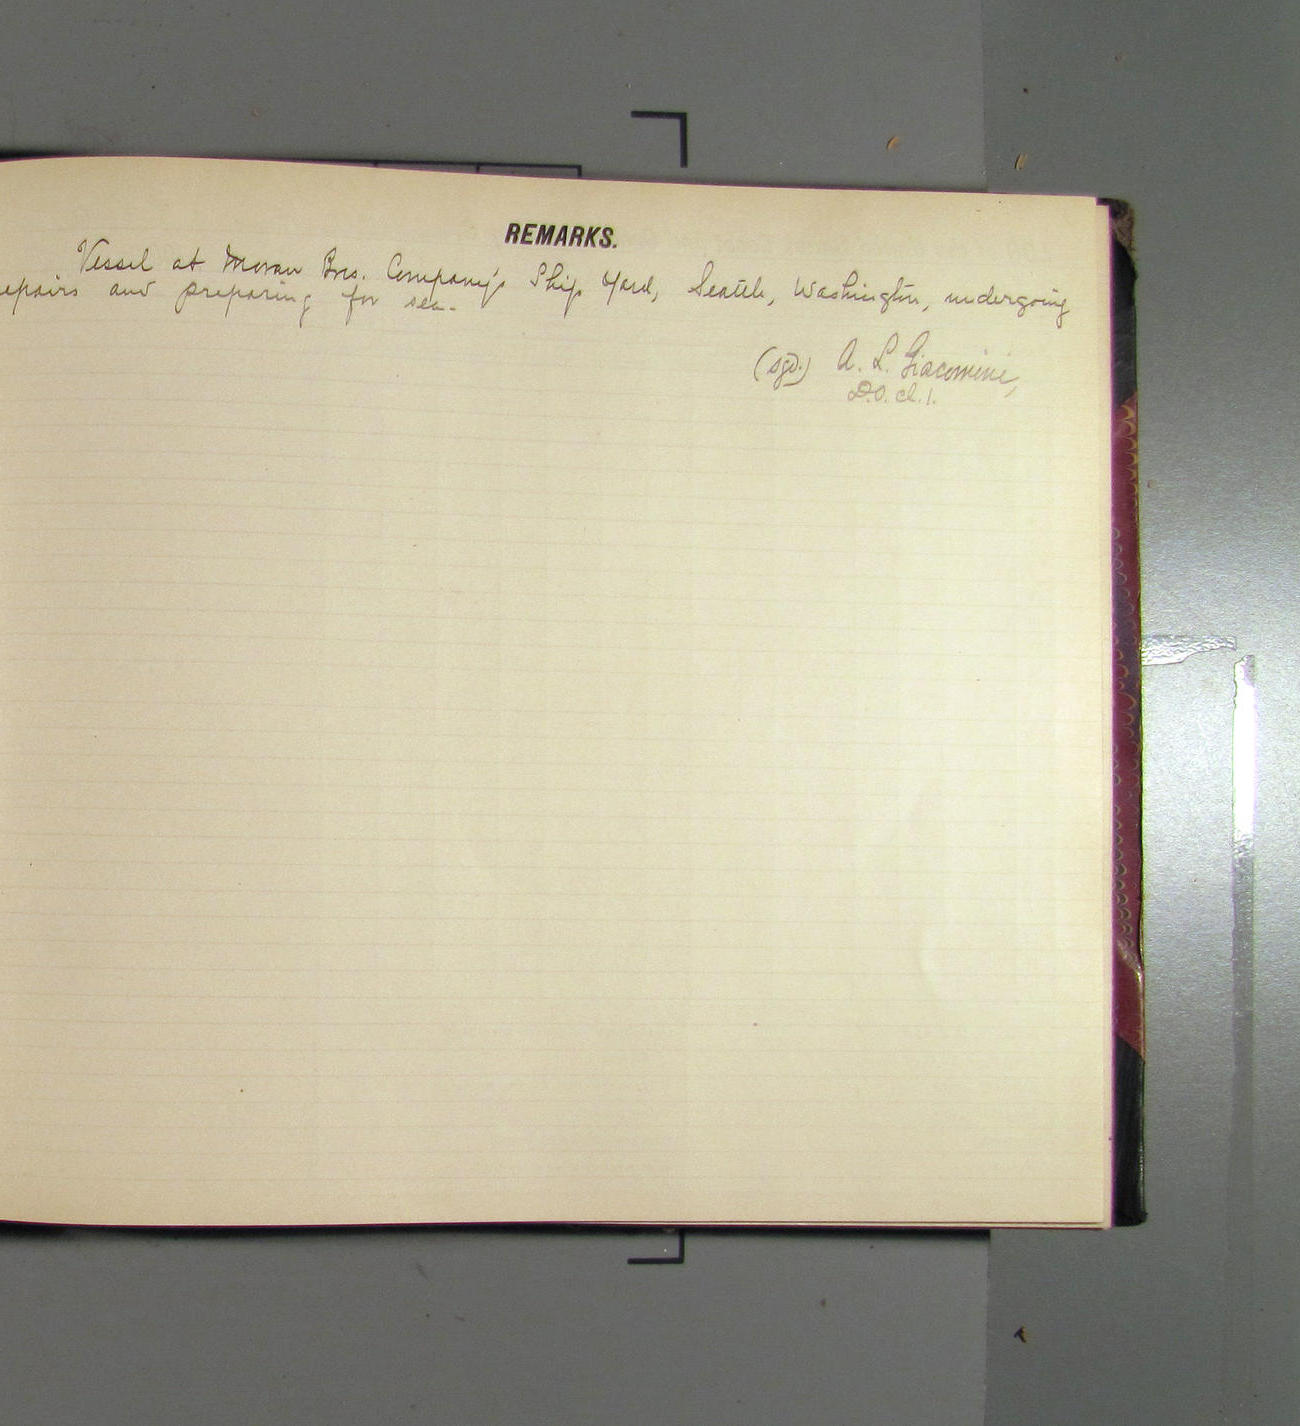 REMARKS.
Vessel at Moran Bros. Company's Ship Yard, Seattle, Washington, undergoing
epairs and preparing for sea.
(sgd.) A. L. Giacomini,
D.O. cl. 1.